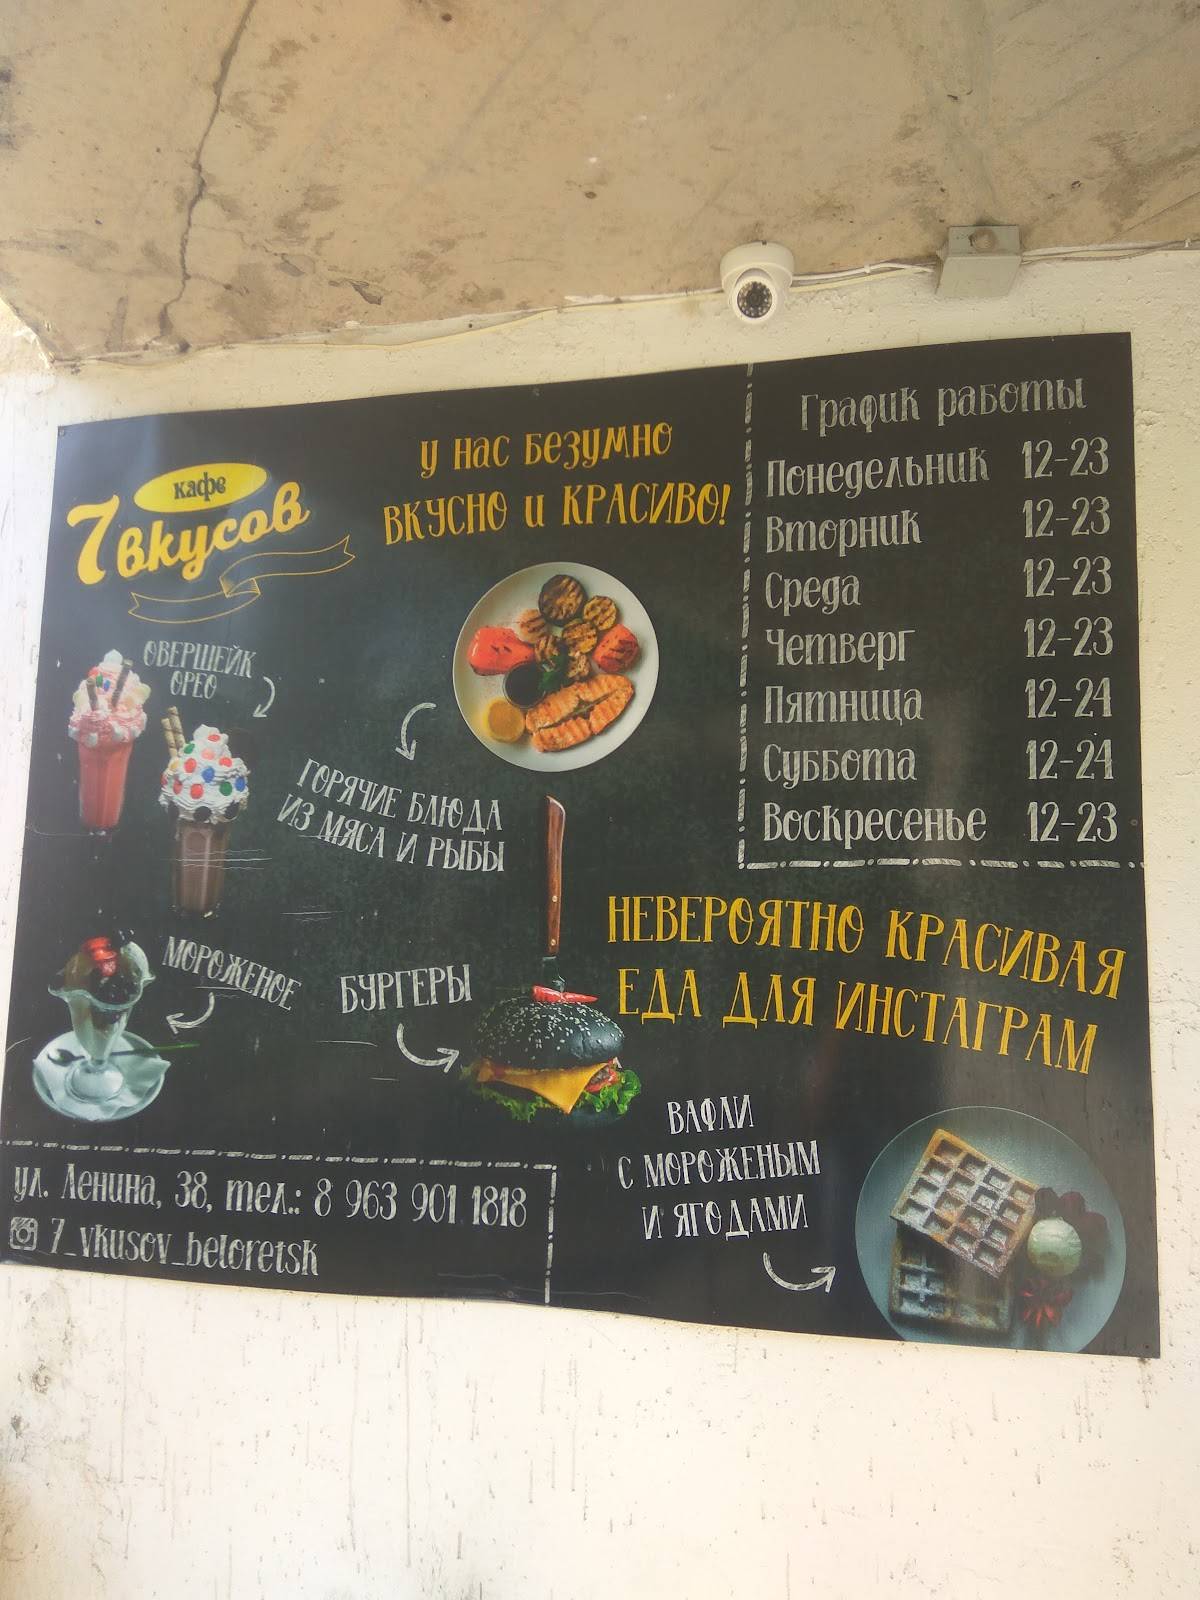 кафе
7 вкусов
у нас безумно
вкусно и КРАСИВО!
График работы
Понедельник 12-23
Вторник 12-23
Среда 12-23
Четверг 12-23
Пятница 12-24
Суббота 12-24
Воскресенье 12-23
ОВЕРШЕЙК
ОРЕО
ГОРЯЧИЕ БЛЮДА
ИЗ МЯСА И РЫБЫ
МОРОЖЕНОЕ
БУРГЕРЫ
НЕВЕРОЯТНО КРАСИВАЯ
ЕДА ДЛЯ ИНСТАГРАМ
ВАФЛИ
С МОРОЖЕНЫМ
И ЯГОДАМИ
ул. Ленина, 38, тел.: 8 963 901 1818
7_vkusov_beloretsk